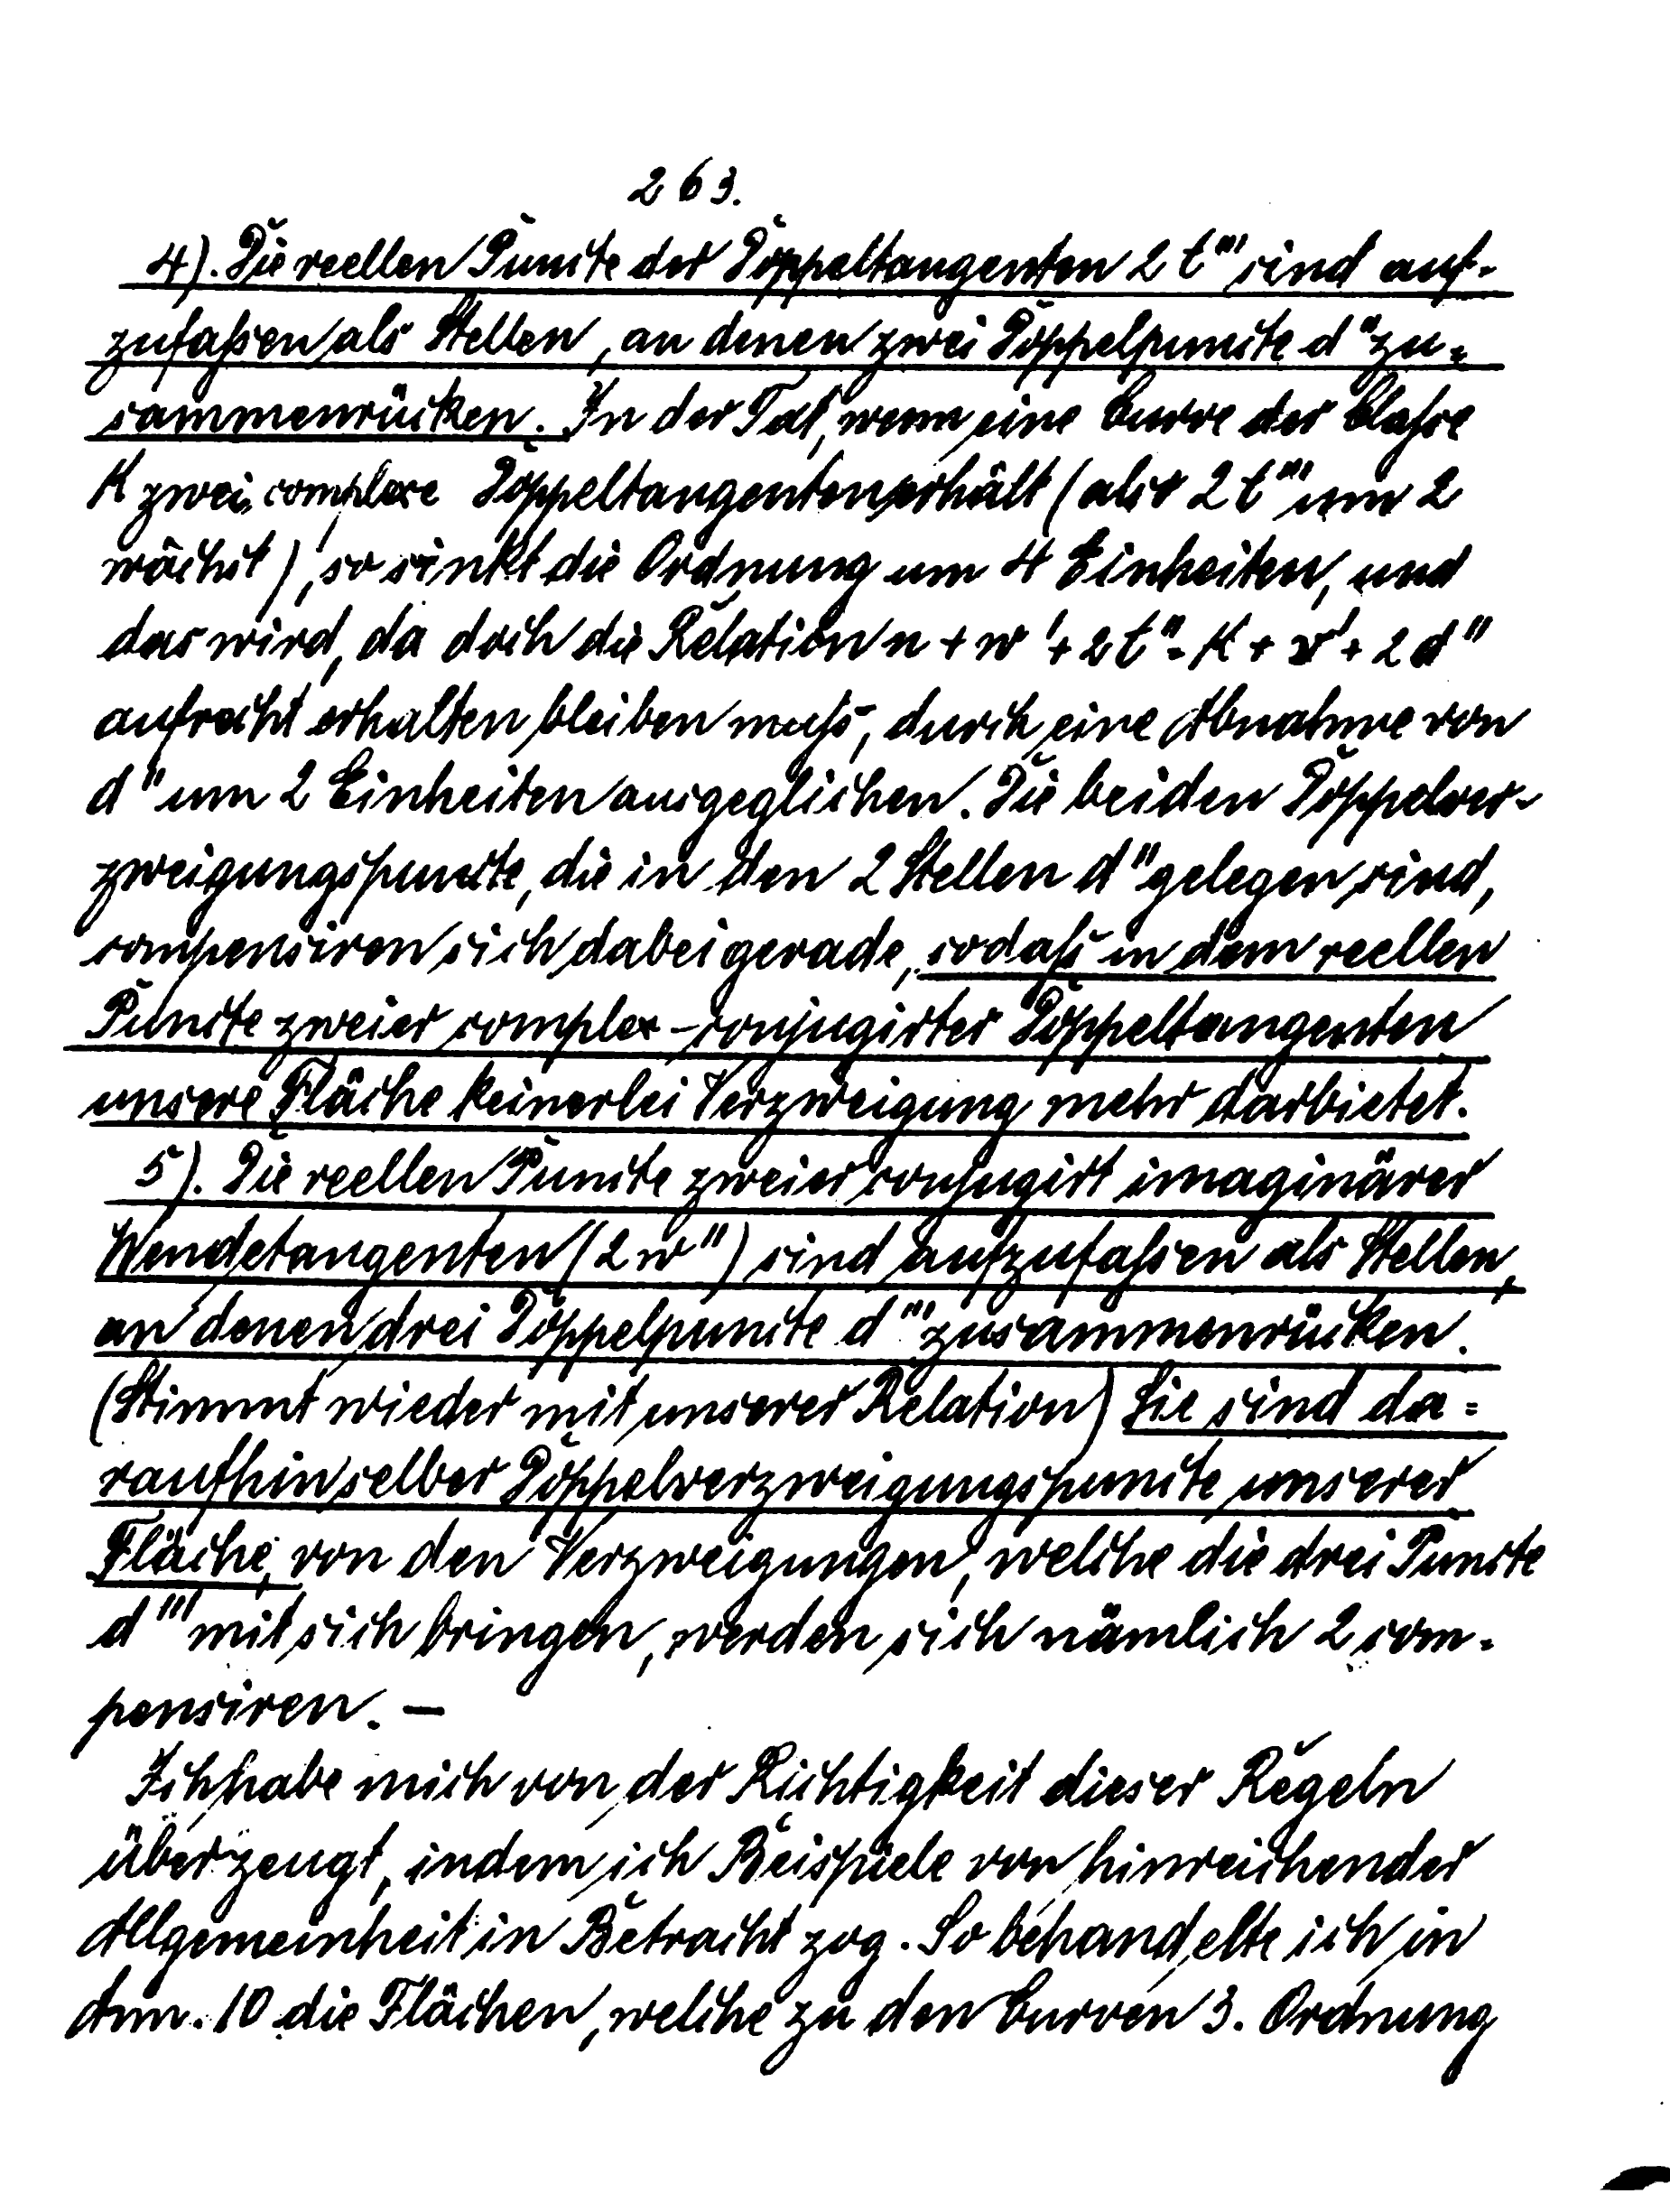 263.
4). Die reellen Puncte der Doppeltangenten 2 t''' sind auf-
zufaßen als Stellen, an denen zwei Doppelpuncte d'' zu=
sammenrücken. In der Tat, wenn eine Curve der Claße
K zwei complexe Doppeltangenten erhält (also 2 t''' um 2
wächst), so sinkt die Ordnung um 4 Einheiten, und
das wird, da doch die Relation n + w' + 2 t'' = K + r' + 2 d''
aufrecht erhalten bleiben muß, durch eine Abnahme von
d'' um 2 Einheiten ausgeglichen. Die beiden Doppelver-
zweigungspuncte, die in den 2 Stellen d'' gelegen sind,
compensiren sich dabei gerade, sodaß in dem reellen
Puncte zweier complex-conjugirter Doppeltangenten
unsere Fläche keinerlei Verzweigung mehr darbietet.
5). Die reellen Puncte zweier conjugirt imaginärer
Wendetangenten (2 w'') sind aufzufaßen als Stellen,
an denen drei Doppelpuncte d''' zusammenrücken.
(Stimmt wieder mit unserer Relation) Sie sind da=
raufhin selber Doppelverzweigungspuncte unserer
Fläche, von den Verzweigungen, welche die drei Puncte
d''' mit sich bringen, werden sich nämlich 2 com-
pensiren. –
Ich habe mich von der Richtigkeit dieser Regeln
überzeugt, indem ich Beispiele von hinreichender
Allgemeinheit in Betracht zog. So behandelte ich in
Ann. 10 die Flächen, welche zu den Curven 3. Ordnung